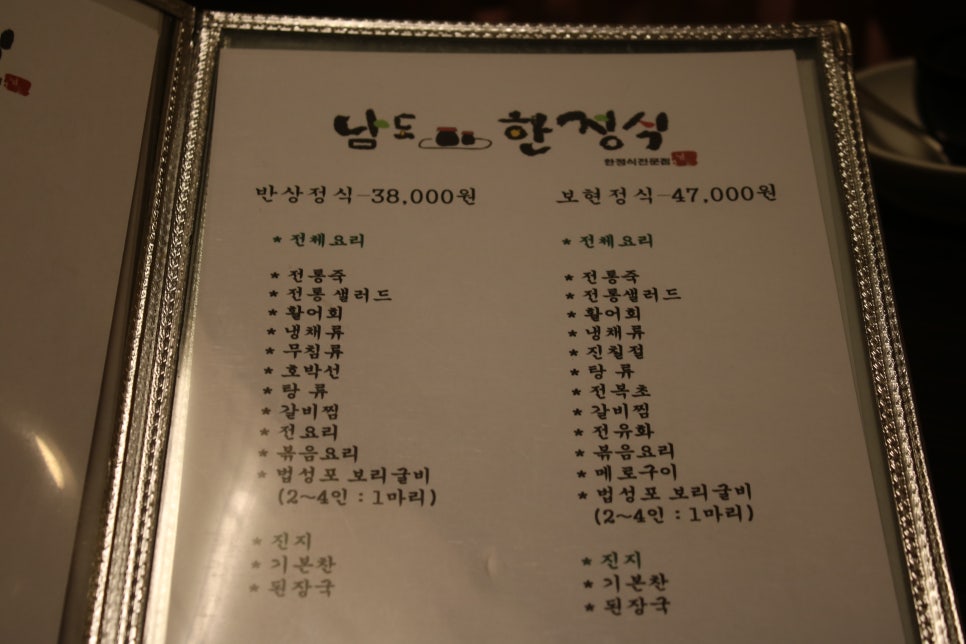 남도 한정식
한정식전문점
반상정식-38,000원
* 전체요리
* 전통죽
* 전통 샐러드
* 활어회
* 냉채류
* 무침류
* 호박선
* 탕 류
* 갈비찜
* 전요리
* 볶음요리
* 법성포 보리굴비
(2~4인 : 1마리)
* 진지
* 기본찬
* 된장국
보현정식-47,000원
* 전체요리
* 전통죽
* 전통샐러드
* 활어회
* 냉채류
* 진칠절
* 탕 류
* 전복초
* 갈비찜
* 전유화
* 볶음요리
* 메로구이
* 법성포 보리굴비
(2~4인 : 1마리)
* 진지
* 기본찬
* 된장국